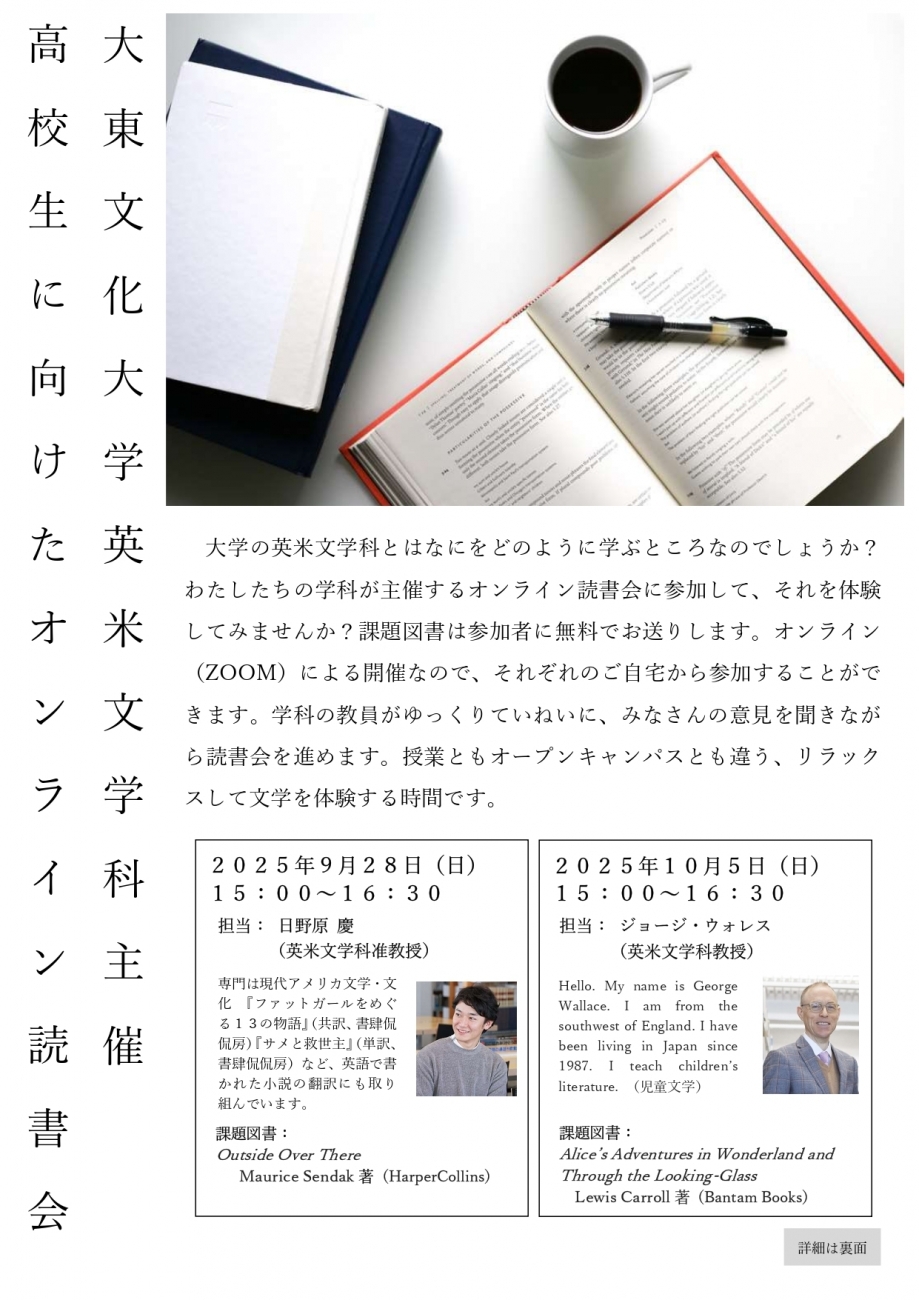 大東文化大学英米文学科主催
高校生に向けたオンライン読書会
大学の英米文学科とはなにをどのように学ぶところなのでしょうか？
わたしたちの学科が主催するオンライン読書会に参加して、それを体験
してみませんか？課題図書は参加者に無料でお送りします。オンライン
（ZOOM）による開催なので、それぞれのご自宅から参加することがで
きます。学科の教員がゆっくりていねいに、みなさんの意見を聞きなが
ら読書会を進めます。授業ともオープンキャンパスとも違う、リラック
スして文学を体験する時間です。
２０２５年９月２８日（日）
１５：００～１６：３０
担当： 日野原 慶
（英米文学科准教授）
専門は現代アメリカ文学・文
化 『ファットガールをめぐ
る１３の物語』（共訳、書肆侃
侃房）『サメと救世主』（単訳、
書肆侃侃房）など、英語で書
かれた小説の翻訳にも取り
組んでいます。
課題図書：
Outside Over There
Maurice Sendak 著（HarperCollins）
２０２５年１０月５日（日）
１５：００～１６：３０
担当： ジョージ・ウォレス
（英米文学科教授）
Hello. My name is George
Wallace. I am from the
southwest of England. I have
been living in Japan since
1987. I teach children’s
literature. （児童文学）
課題図書：
Alice’s Adventures in Wonderland and
Through the Looking-Glass
Lewis Carroll 著（Bantam Books）
詳細は裏面